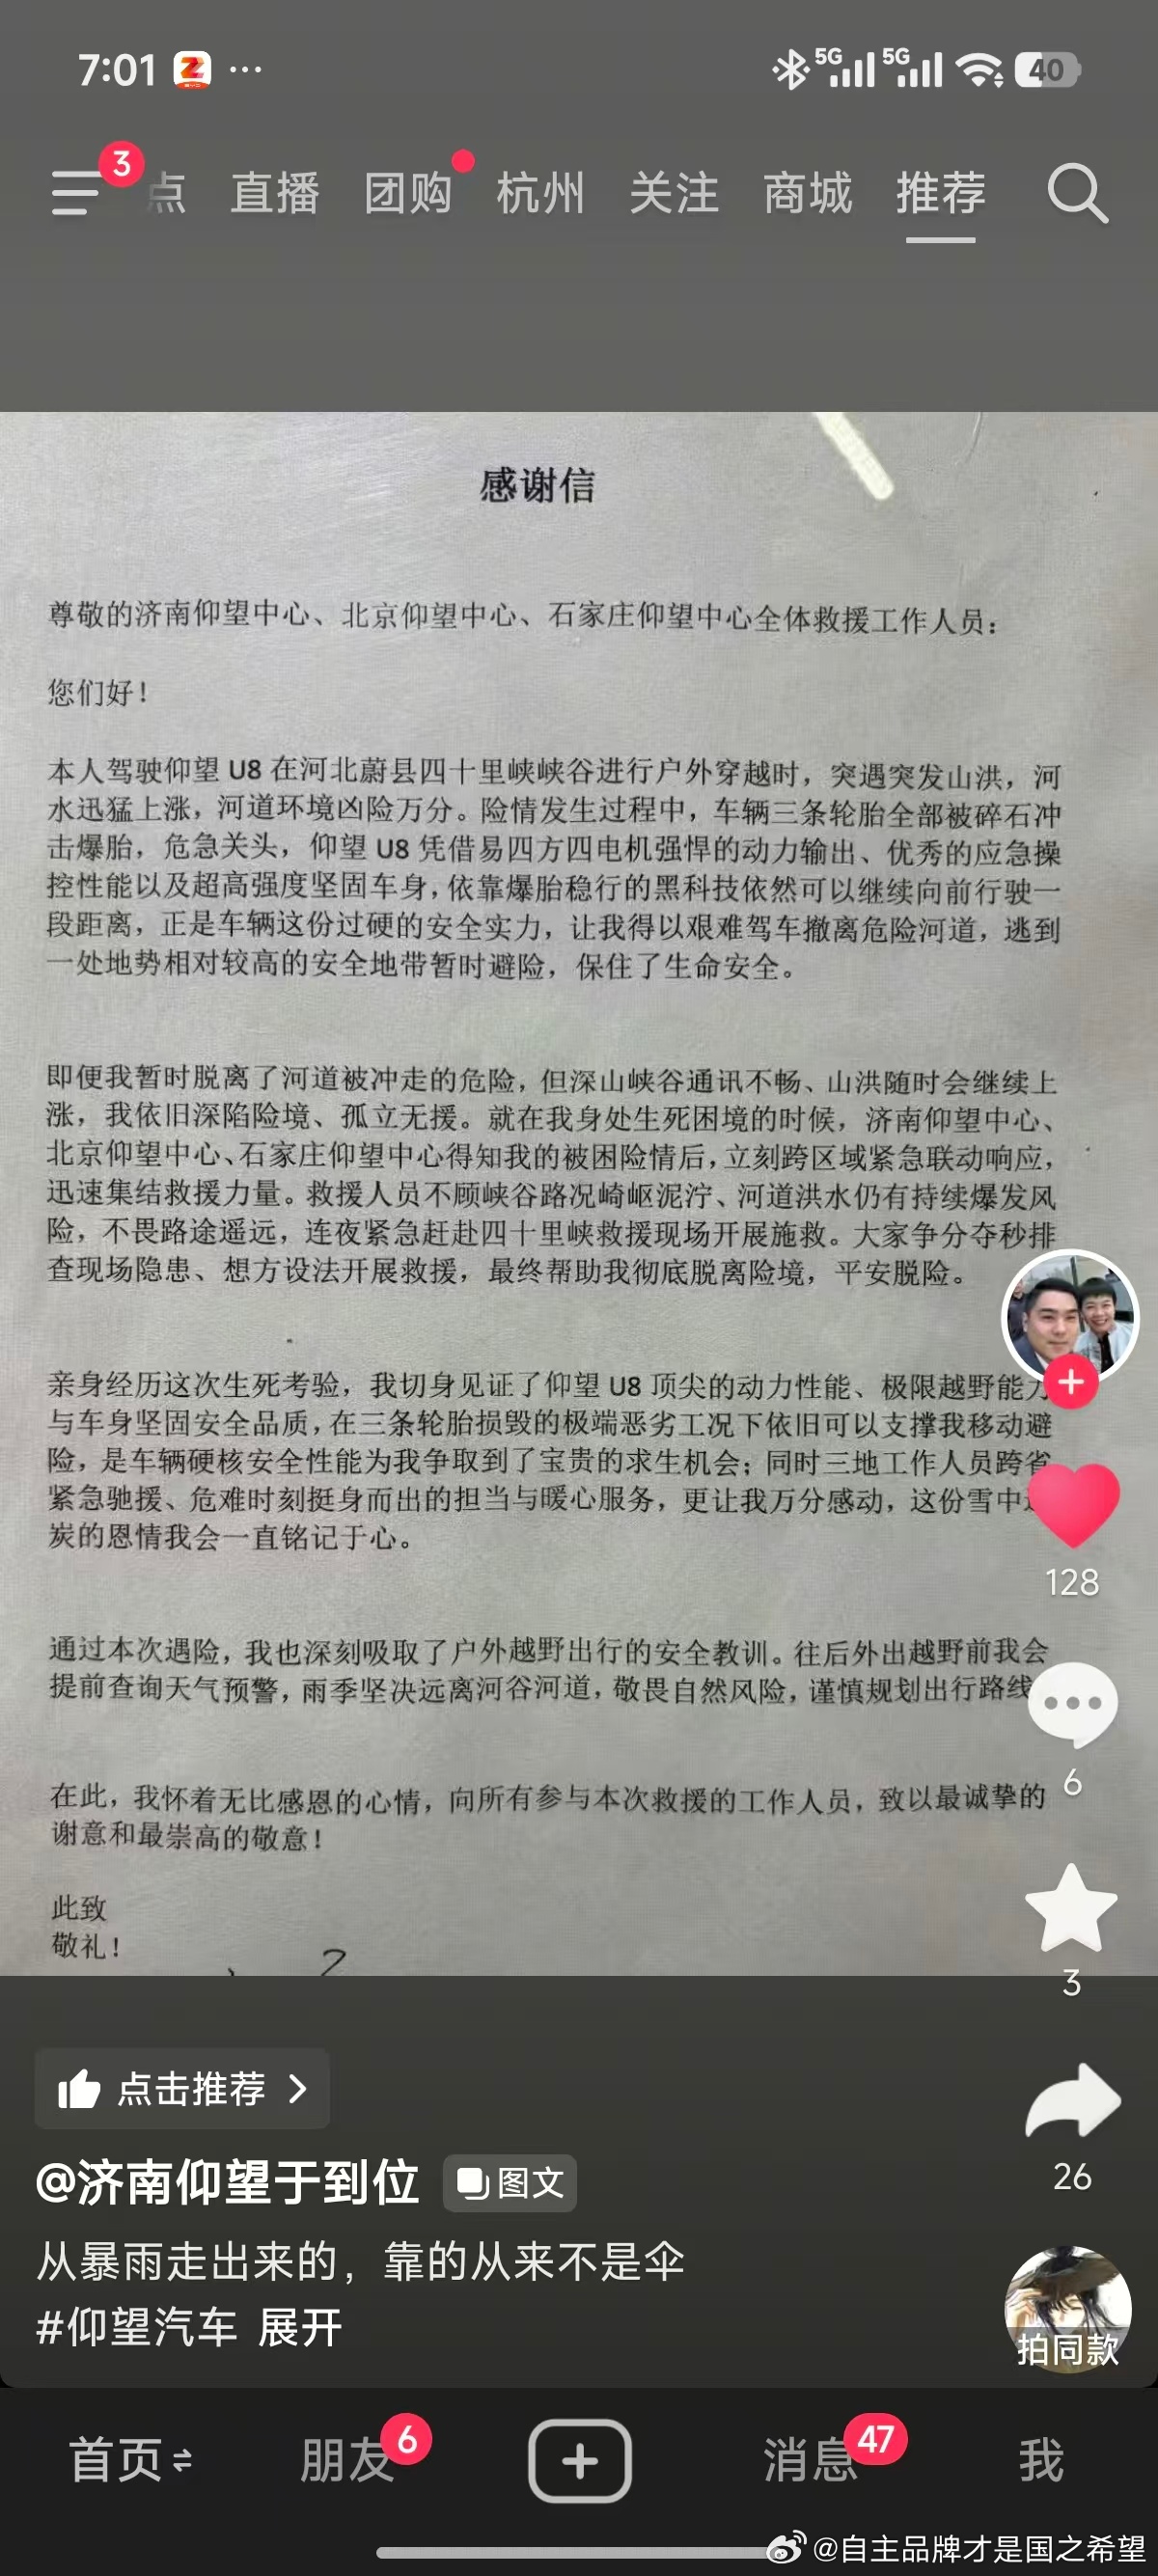 7:01
5G 5G 40
3
点 直播 团购 杭州 关注 商城 推荐
感谢信
尊敬的济南仰望中心、北京仰望中心、石家庄仰望中心全体救援工作人员：
您们好！
本人驾驶仰望 U8 在河北蔚县四十里峡峡谷进行户外穿越时，突遇突发山洪，河
水迅猛上涨，河道环境凶险万分。险情发生过程中，车辆三条轮胎全部被碎石冲
击爆胎，危急关头，仰望 U8 凭借易四方四电机强悍的动力输出、优秀的应急操
控性能以及超高强度坚固车身，依靠爆胎稳行的黑科技依然可以继续向前行驶一
段距离，正是车辆这份过硬的安全实力，让我得以艰难驾车撤离危险河道，逃到
一处地势相对较高的安全地带暂时避险，保住了生命安全。
即便我暂时脱离了河道被冲走的危险，但深山峡谷通讯不畅、山洪随时会继续上
涨，我依旧深陷险境、孤立无援。就在我身处生死困境的时候，济南仰望中心、
北京仰望中心、石家庄仰望中心得知我的被困险情后，立刻跨区域紧急联动响应，
迅速集结救援力量。救援人员不顾峡谷路况崎岖泥泞、河道洪水仍有持续爆发风
险，不畏路途遥远，连夜紧急赶赴四十里峡救援现场开展施救。大家争分夺秒排
查现场隐患、想方设法开展救援，最终帮助我彻底脱离险境，平安脱险。
亲身经历这次生死考验，我切身见证了仰望 U8 顶尖的动力性能、极限越野能力
与车身坚固安全品质，在三条轮胎损毁的极端恶劣工况下依旧可以支撑我移动避
险，是车辆硬核安全性能为我争取到了宝贵的求生机会；同时三地工作人员跨省
紧急驰援、危难时刻挺身而出的担当与暖心服务，更让我万分感动，这份雪中
炭的恩情我会一直铭记于心。
通过本次遇险，我也深刻吸取了户外越野出行的安全教训。往后外出越野前我会
提前查询天气预警，雨季坚决远离河谷河道，敬畏自然风险，谨慎规划出行路线
在此，我怀着无比感恩的心情，向所有参与本次救援的工作人员，致以最诚挚的
谢意和最崇高的敬意！
此致
敬礼！
128
6
3
26
点击推荐
@济南仰望于到位 图文
从暴雨走出来的，靠的从来不是伞
#仰望汽车 展开
拍同款
首页 朋友 6 消息 47 我
@自主品牌才是国之希望